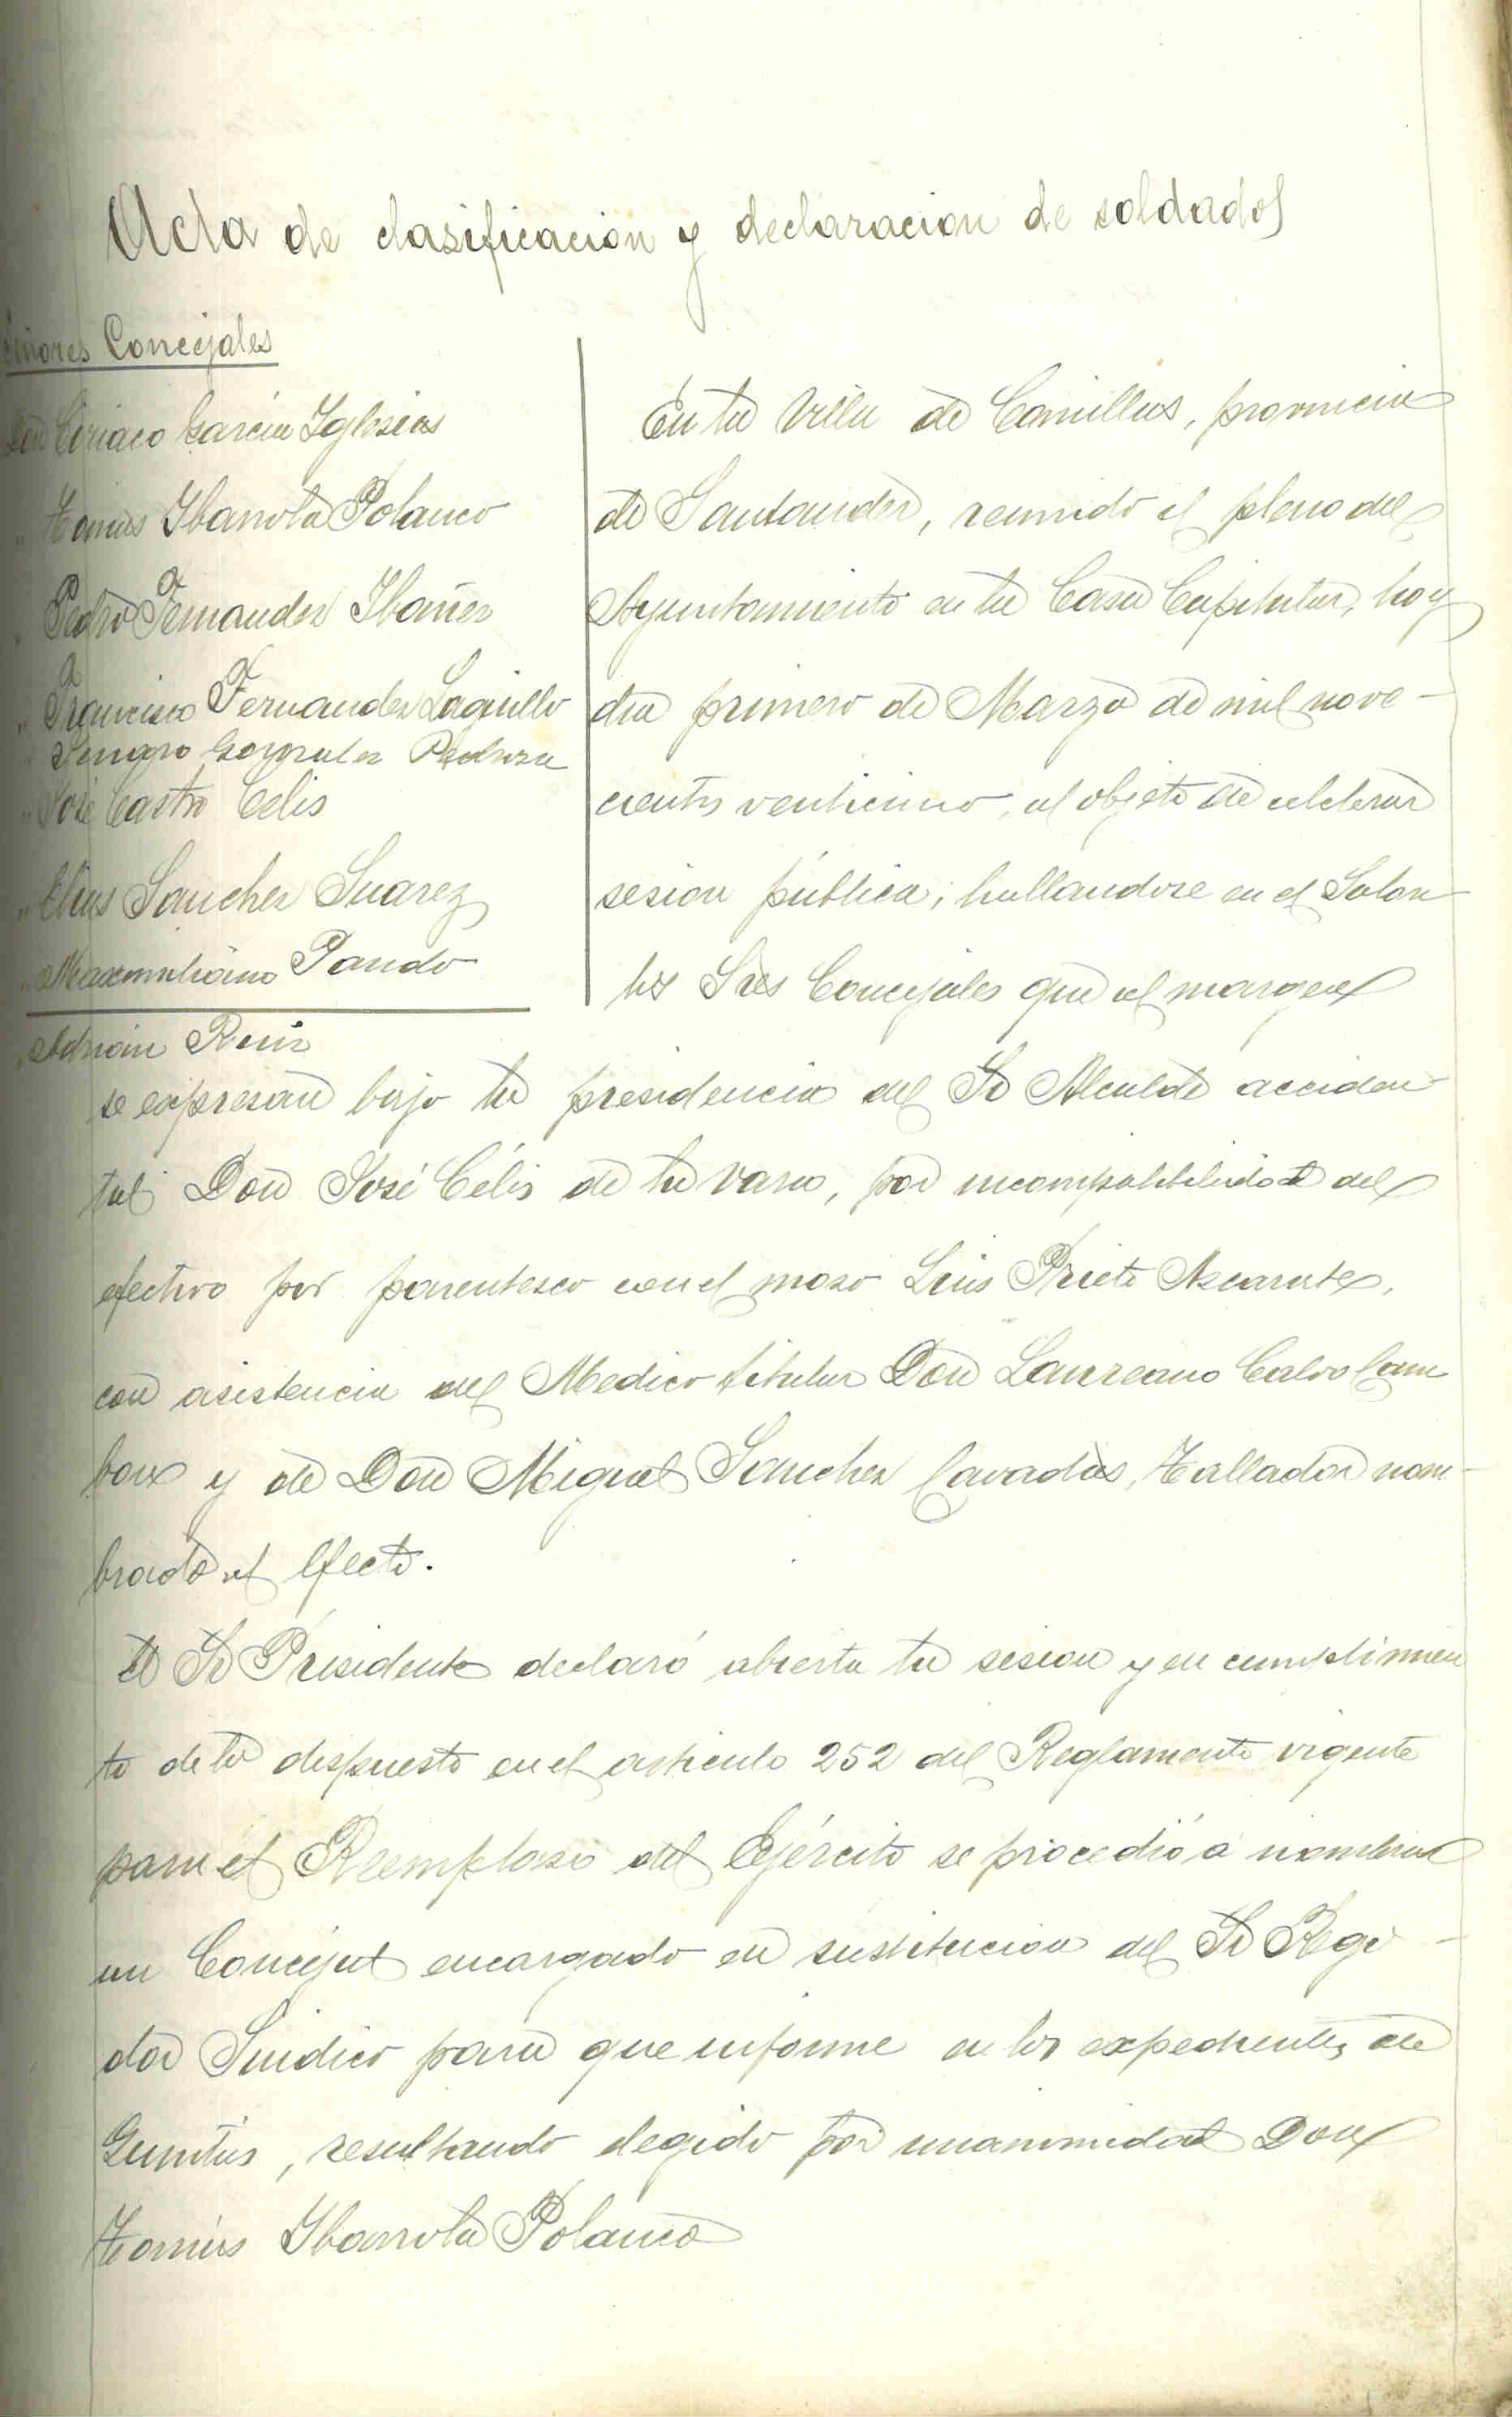 Acta de clasificacion y declaracion de soldados
Señores Concejales
Don Ciriaco Garcia Iglesias
" Tomás Ibarrola Polanco
" Pedro Fernandez Ibañez
" Francisco Fernandez Laguillo
" Genaro Gonzalez Pedraza
" José Castro Celis
" Elias Sanchez Suarez
" Maximiliano Pando
" Adrián Ruiz
En la Villa de Comillas, provincia
de Santander, reunido el pleno del
Ayuntamiento en la Casa Capitular, hoy
dia primero de Marzo de mil nove-
cientos venticinco, al objeto de celebrar
sesion pública; hallandose en el Salon
los Sres Concejales que al margen
se expresan bajo la presidencia del Sr Alcalde acciden
tal Don José Célis de la Vara, por incompatibilidad del
efectivo por parentesco con el mozo Luis Prieto Azcarate,
con asistencia del Medico titular Don Laureano Calvo Cam
bon y de Don Miguel Sanchez Cavadas, Tallador nom-
brado al efecto.
El Sr Presidente declaró abierta la sesion y en cumplimien
to de lo dispuesto en el articulo 252 del Reglamento vigente
para el Reemplazo del Ejército se procedió á nombrar
un Concejal encargado en sustitucion del Sr Regi-
dor Sindico para que informe en los expedientes de
Quintas, resultando elegido por unanimidad Don
Tomás Ibarrola Polanco